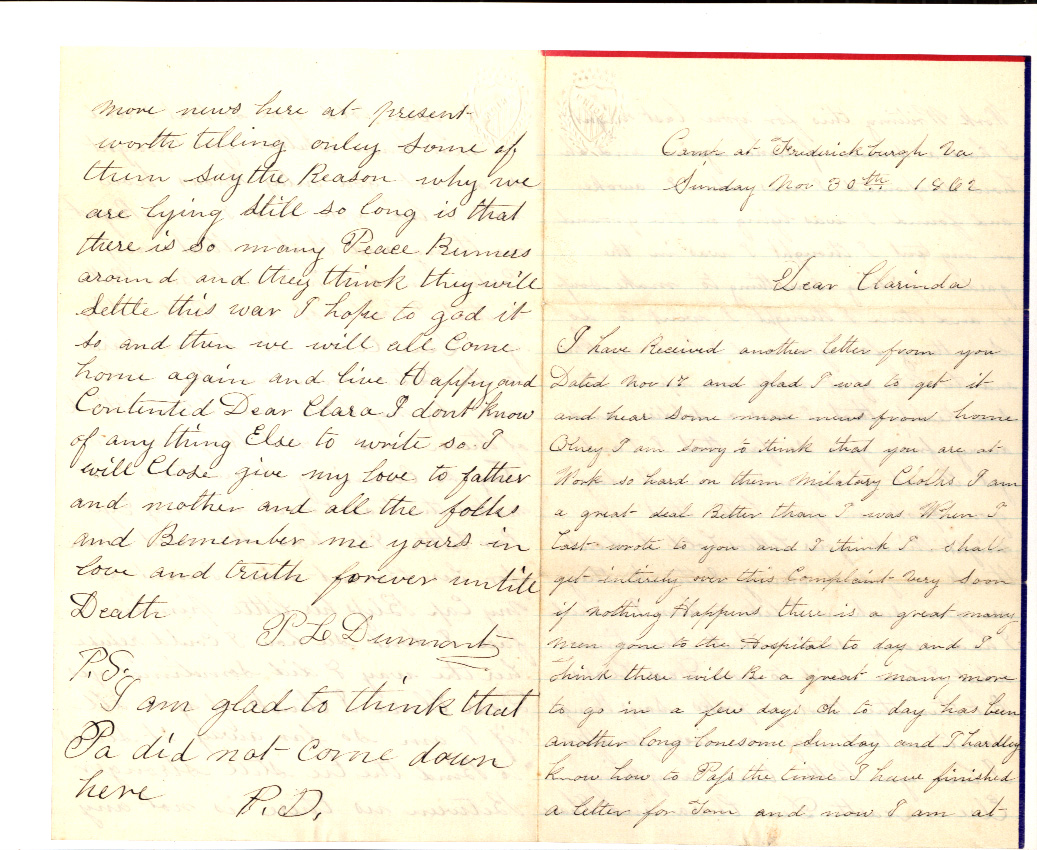 Camp at Frederickburgh Va
Sunday Nov 30th 1862
Dear Clarinda
I have Received another letter from you
Dated Nov 17 and glad I was to get it
and hear some more news from home
Olney I am sorry to think that you are at
Work so hard on them Milatory Cloths I am
a great deal Better than I was When I
Last wrote to you and I think I shal
get intirely over this Complaint very soon
if nothing Happens there is a great many
men gone to the Hospital to day and I
think there will Be a great many more
to go in a few days Oh to day has been
another long lonesome Sunday and I hardley
know how to Pass the time I have finished
a letter for Tom and now I am at
more news here at present
worth telling onley some of
them say the Reason why we
are lying still so long is that
there is so many Peace Rumers
around and they think they will
settle this war I hope to god it
so and then we will all Come
home again and live Happy and
Contented Dear Clara I dont know
of any thing Else to write so I
will Close give my love to father
and mother and all the folks
and Remember me yours in
love and truth forever untill
Death
P L Dumont
P.S.
I am glad to think that
Pa did not come down
here P.D.